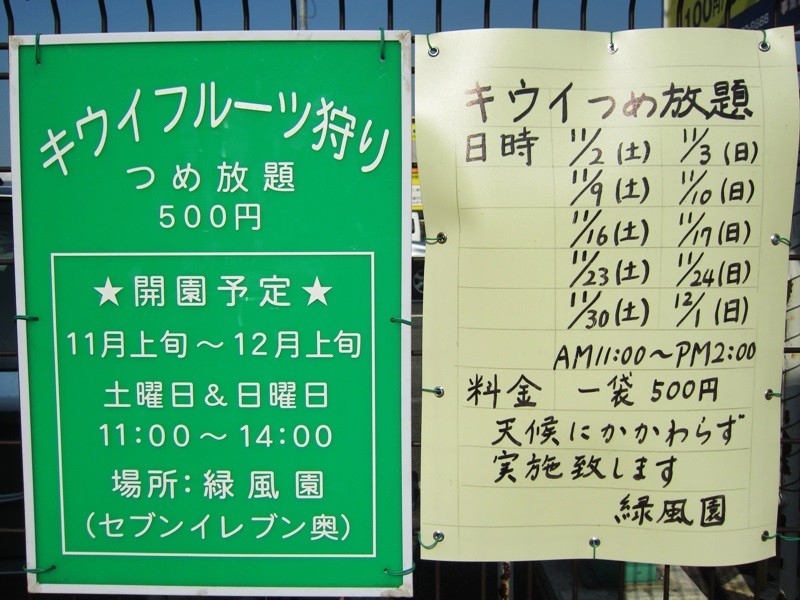 キウイフルーツ狩り
つめ放題
500円
★開園予定★
11月上旬～12月上旬
土曜日＆日曜日
11:00～14:00
場所：緑風園
（セブンイレブン奥）
100円
キウイつめ放題
日時 11/2(土) 11/3(日)
11/9(土) 11/10(日)
11/16(土) 11/17(日)
11/23(土) 11/24(日)
11/30(土) 12/1(日)
AM11:00～PM2:00
料金 一袋 500円
天候にかかわらず
実施致します
緑風園